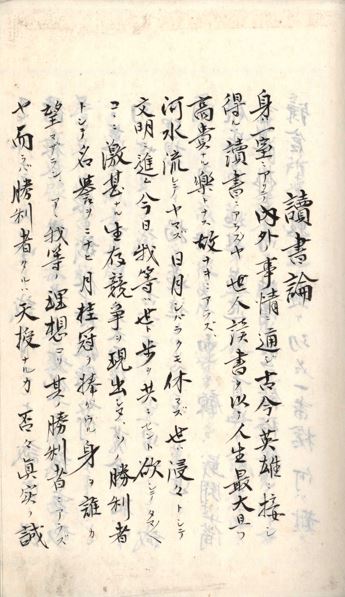 讀書論
身一室ニアリテ内外事情ニ通ジ古今英雄ニ接シ
得ルハ讀書ニアラズヤ世人讀書ヲ以テ人生最大且ツ
高貴ナル樂トナス故ナキニアラズ
河水流レテヤマズ日月シバラクモ休マズ世ハ浸々トシテ
文明ニ進ム今日我等ハ世ト歩ヲ共ニセント欲シテ
ココニ激甚ナル生存競争ヲ現出シ 勝利者
トシテ名誉ヲニナヒ月桂冠ヲ捧 身ヲ誰カ
望マザラン 我等ノ理想ニ 其ノ勝利者ニアラズ
ヤ而シテ勝利者タルハ天授ナルカ否々真実ノ誠